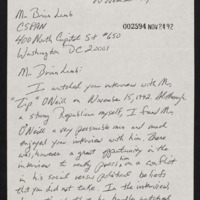 Mr Brian Lamb
CSPAN
002594 NOV 24 92
400 North Capitol St #650
Washington DC 20001
Mr. Brian Lamb:
I watched your interview with Mr.
"Tip" O'Neill on November 15, 1992. Although
a strong Republican myself, I found Mr.
O'Neill a very personable man and much
enjoyed your interview with him. There
was, however a great opportunity in the
interview to a conflict
in his social versus political beliefs
that you did not take. In the interview,